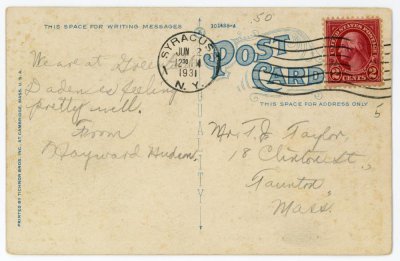 THIS SPACE FOR WRITING MESSAGES
301488-A
50
SYRACUSE
JUN 2
12 PM
1931
N.Y.
POST
CARD
THIS SPACE FOR ADDRESS ONLY
UNITED STATES POSTAGE
2 CENTS 2
5
We are at
is feeling
pretty well.
From
Hayward Hudson.
Mr. T. J. Taylor,
18 Clinton st.,
Taunton,
Mass.
PRINTED BY TICHNOR BROS. INC. AT CAMBRIDGE, MASS. U.S.A.